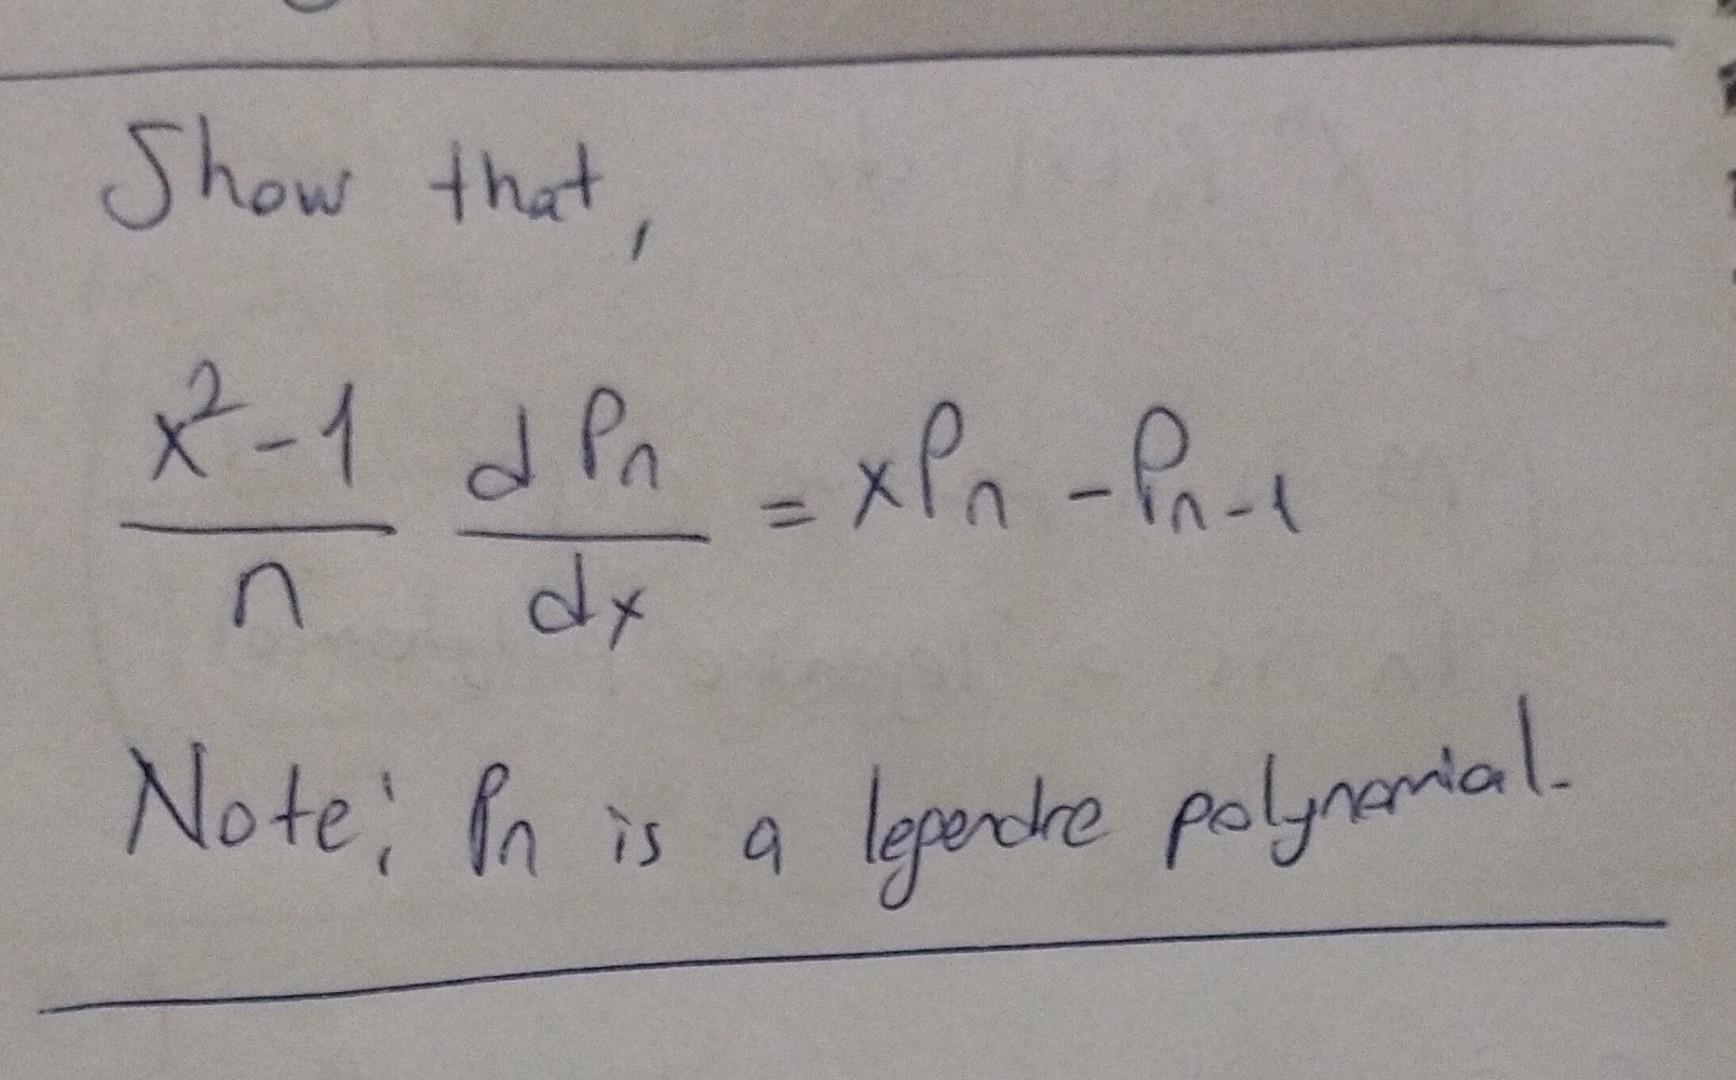 Show that,
x²-1/n dPn/dx = xPn - Pn-1
Note: Pn is a legendre polynomial.